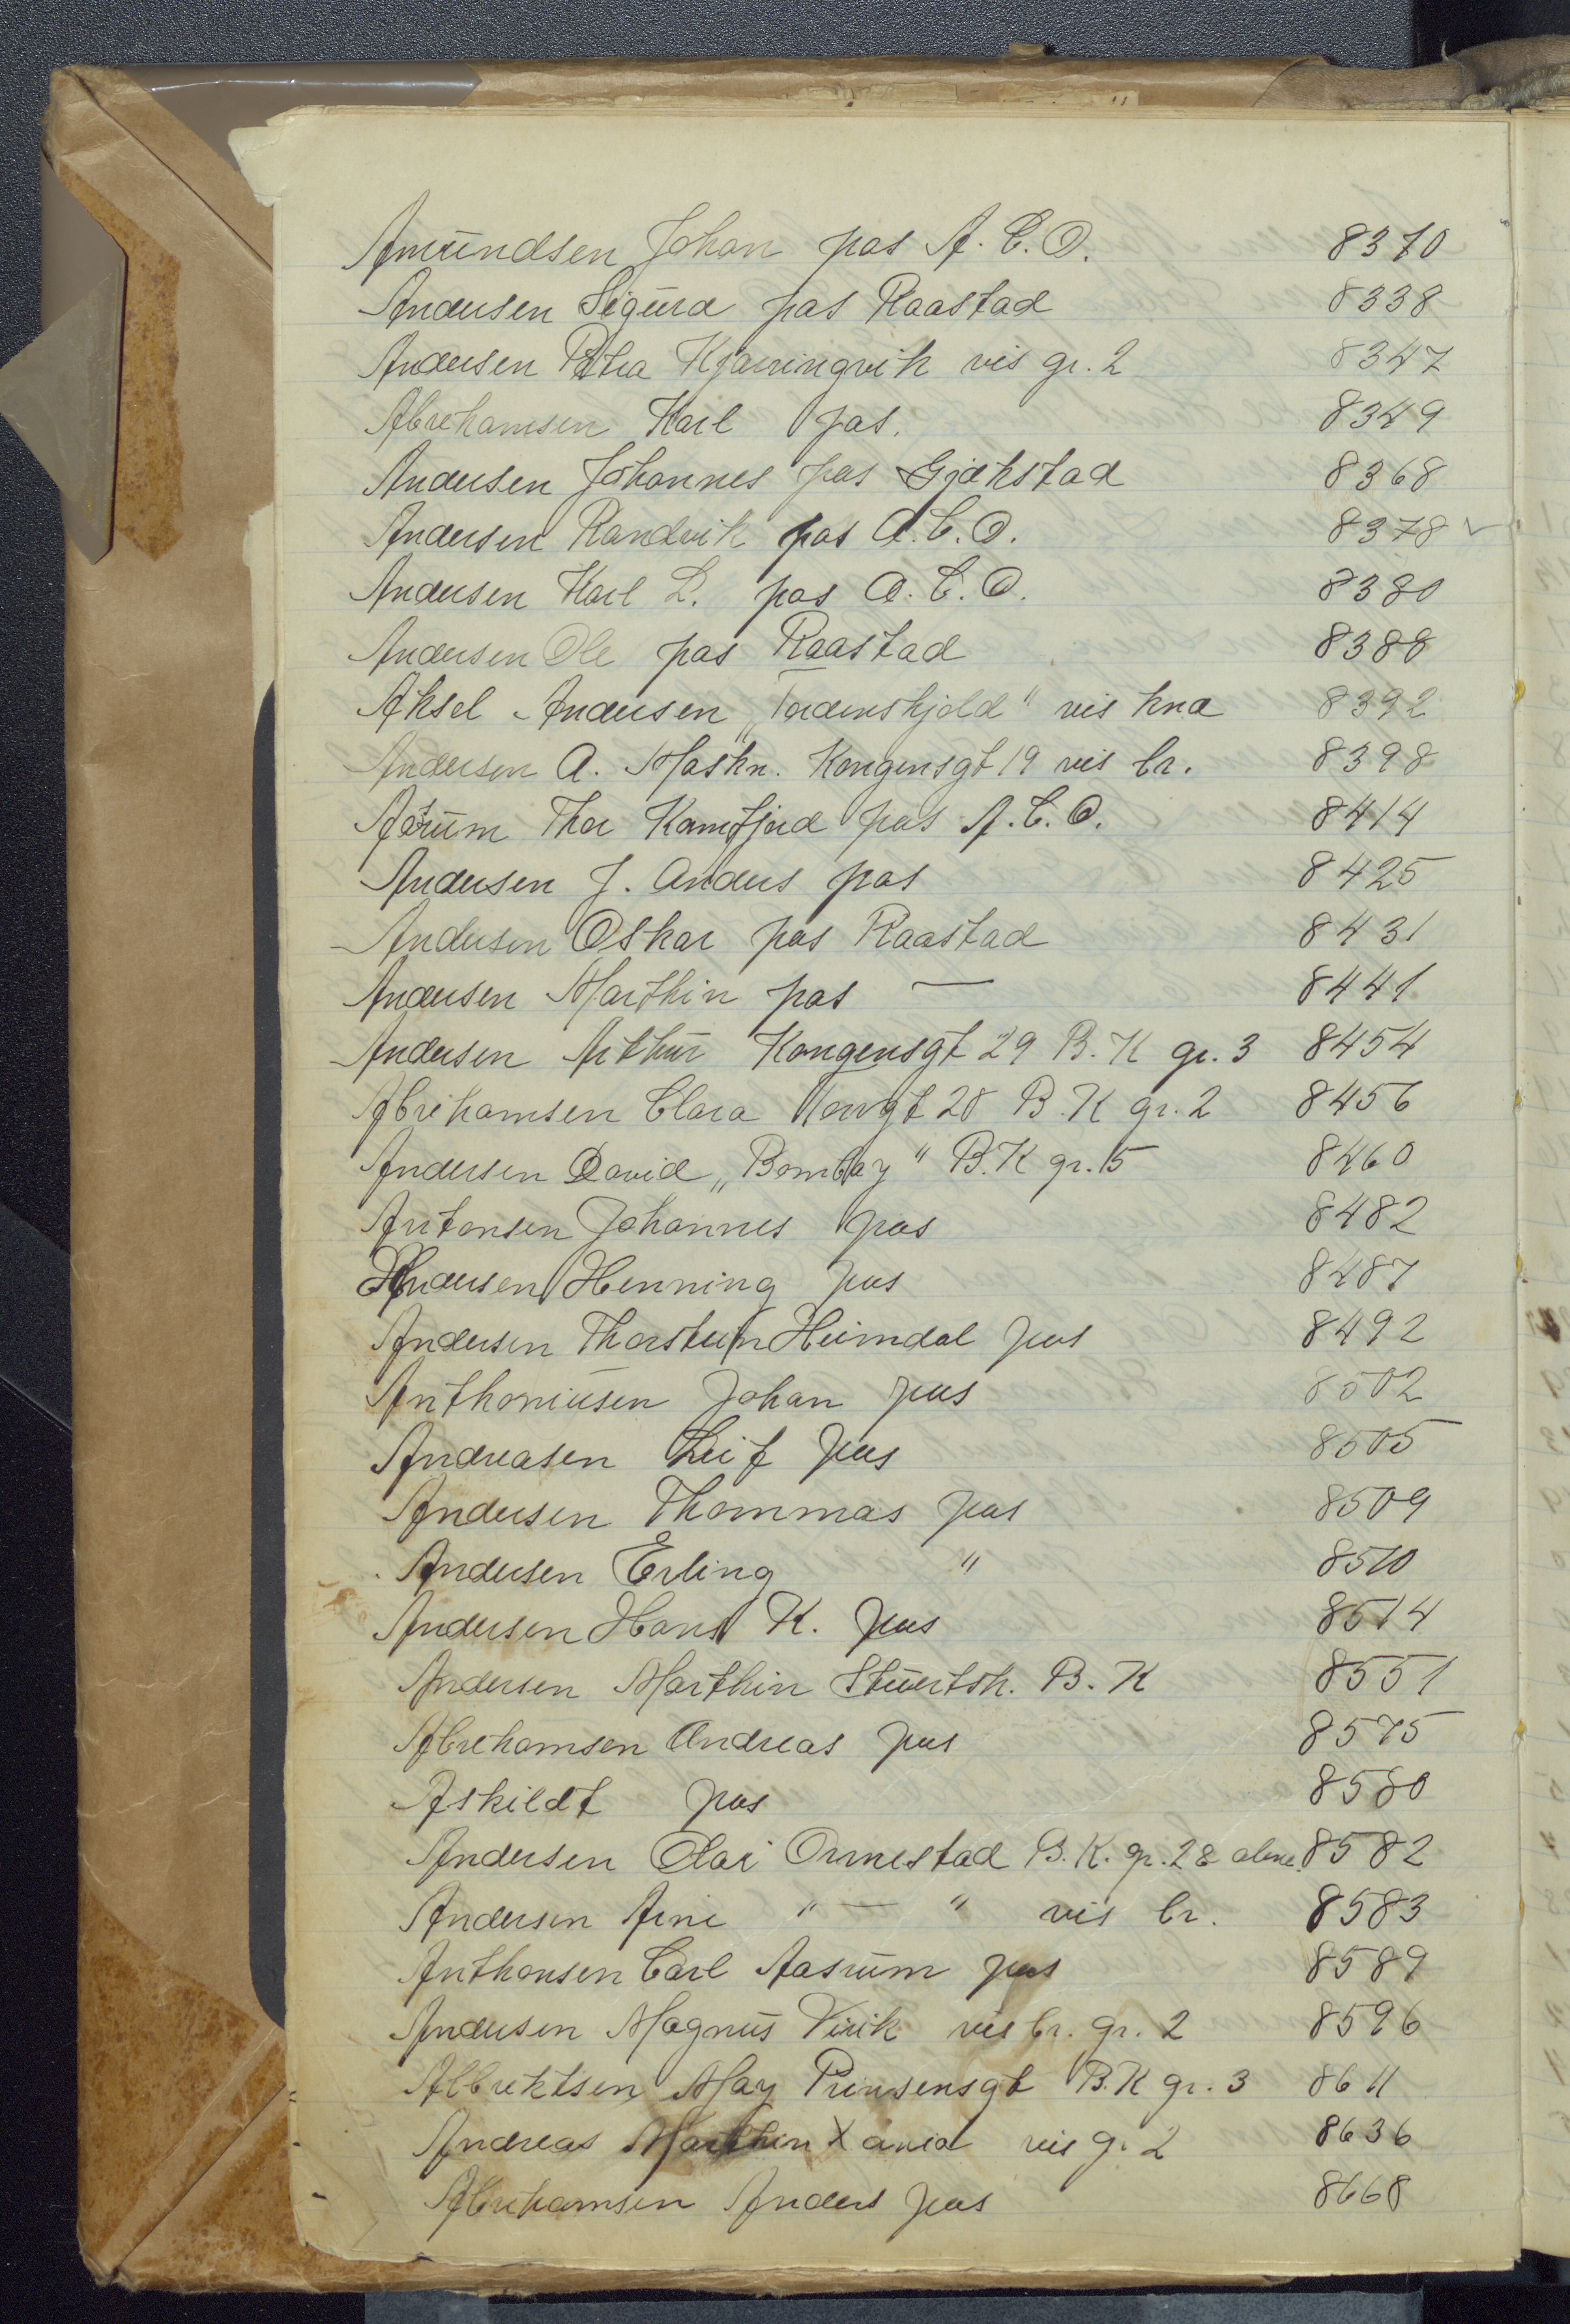 Amundsen Johan pas A.C.O. 8370
Andersen Sigurd pas Raastad 8338
Andersen Petra Kjærringvik vis gr. 2 8347
Abrehamsen Karl pas. 8349
Andersen Johannes pas Gjekstad 8368
Andersen Randvik pas A.C.O. 8378 ✓
Andersen Karl L. pas A.C.O. 8380
Andersen Ole pas Raastad 8388
Aksel Andersen „Tordenskjold" vis kna 8392
Andersen A. Maskn. Kongensgt 19 vis br. 8398
Thor Kamfjord pas A.C.O. 8414
Andersen J. Anders pas 8425
Andersen Oskar pas Raastad 8431
Andersen Marthin pas — 8441
Andersen Arthur Kongensgt 29 B.K gr. 3 8454
Abrihamsen Clara Kongt 28 B.K gr. 2 8456
Andersen David „Bombay" B.K gr. 5 8460
Antonsen Johannes pas 8482
Andersen Henning pas 8487
Andersen Thorstein Heimdal pas 8492
Anthoniusen Johan pas 8502
Andreasen Leif pas 8505
Andersen Thommas pas 8509
Andersen Erling " 8510
Andersen Hans K. pas 8514
Andersen Marthin B.K 8551
Abrehamsen Andreas pas 8575
Askildt pas 8580
Andersen Olai Ormestad B.K. gr. 2 & alene 8582
Andersen Arne " — " vis br. 8583
Anthonsen Carl Aasrum pas 8589
Andersen Magnus Virik vis br. gr. 2 8596
Albrektsen May Prinsensgt B.K gr. 3 8611
Andreas Marthin X vis gr 2 8636
Abrehamsen Anders pas 8668